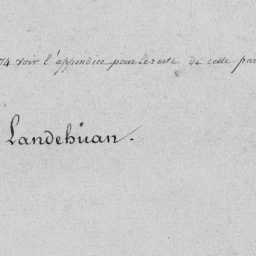 74 voir l'appendice pour le reste de cette par
Landehuan.